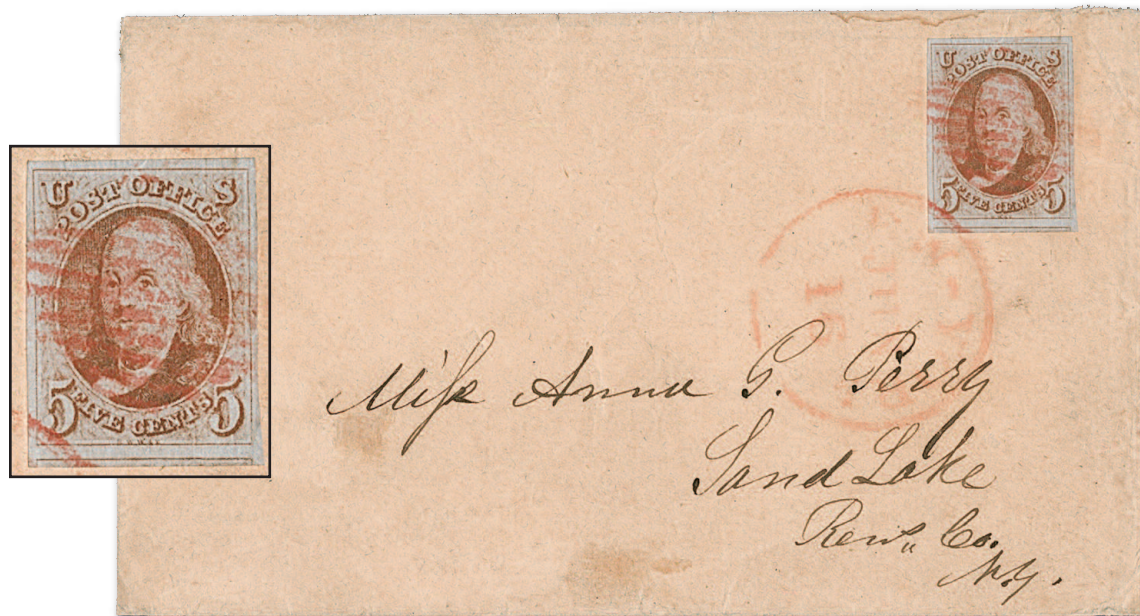 U S
POST OFFICE
5 FIVE CENTS 5
U S
POST OFFICE
5 FIVE CENTS 5
Miſs Anna G. Perry
Sand Lake
Rens,, Co.
N.Y.